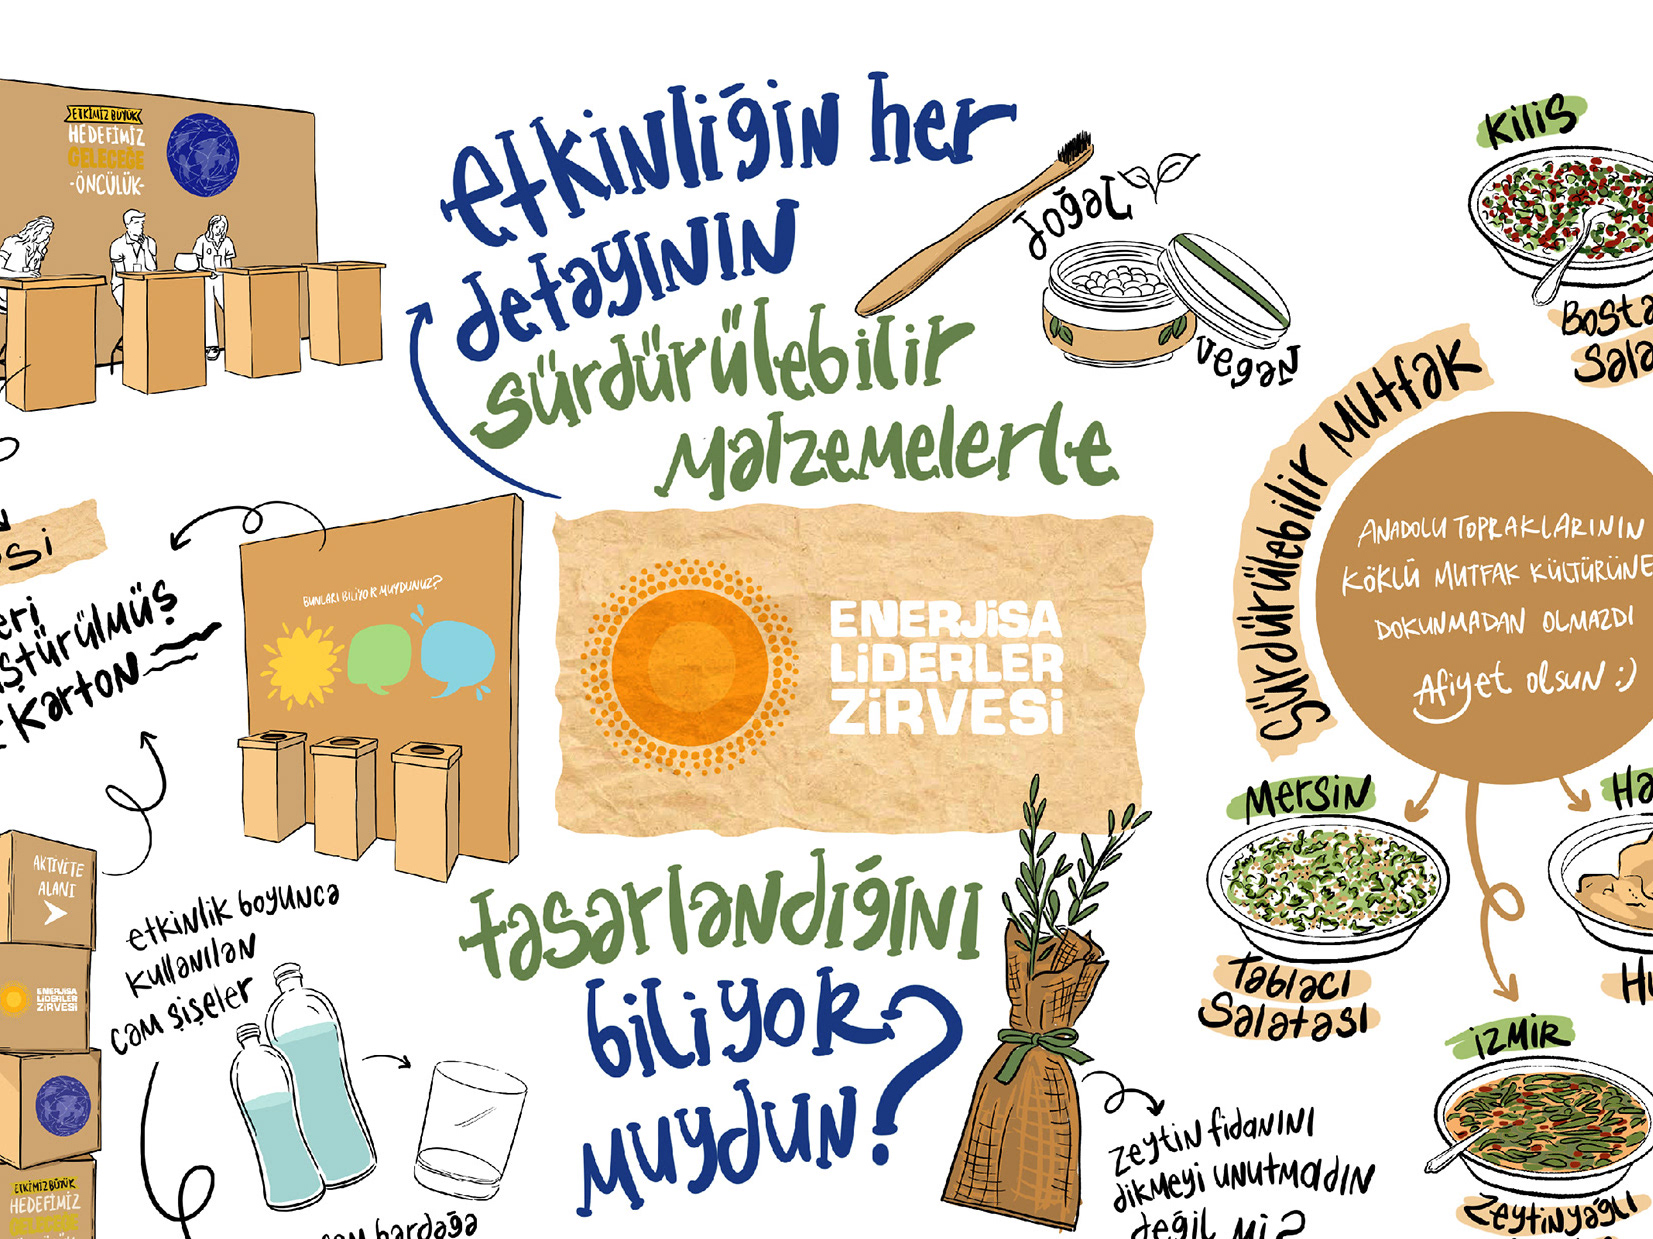 ETKİMİZ BÜYÜK
HEDEFİMİZ
GELECEĞE
-ÖNCÜLÜK-
etkinliğin her
detayının
sürdürülebilir
malzemelerle
doğal
vegan
Kilis
Sürdürülebilir Mutfak
ANADOLU TOPRAKLARININ
KÖKLÜ MUTFAK KÜLTÜRÜNE
DOKUNMADAN OLMAZDI
Afiyet olsun :)
Karton
BUNLARI BİLİYOR MUYDUNUZ?
ENERJİSA
LİDERLER
ZİRVESİ
Mersin
Tablacı
Salatası
İZMİR
Zeytinyağlı
AKTİVİTE
ALANI
ENERJİSA
LİDERLER
ZİRVESİ
ETKİMİZ BÜYÜK
HEDEFİMİZ
GELECEĞE
etkinlik boyunca
kullanılan
cam şişeler
cam bardağa
tasarlandığını
biliyor
muydun?
zeytin fidanını
dikmeyi unutmadın
değil mi?